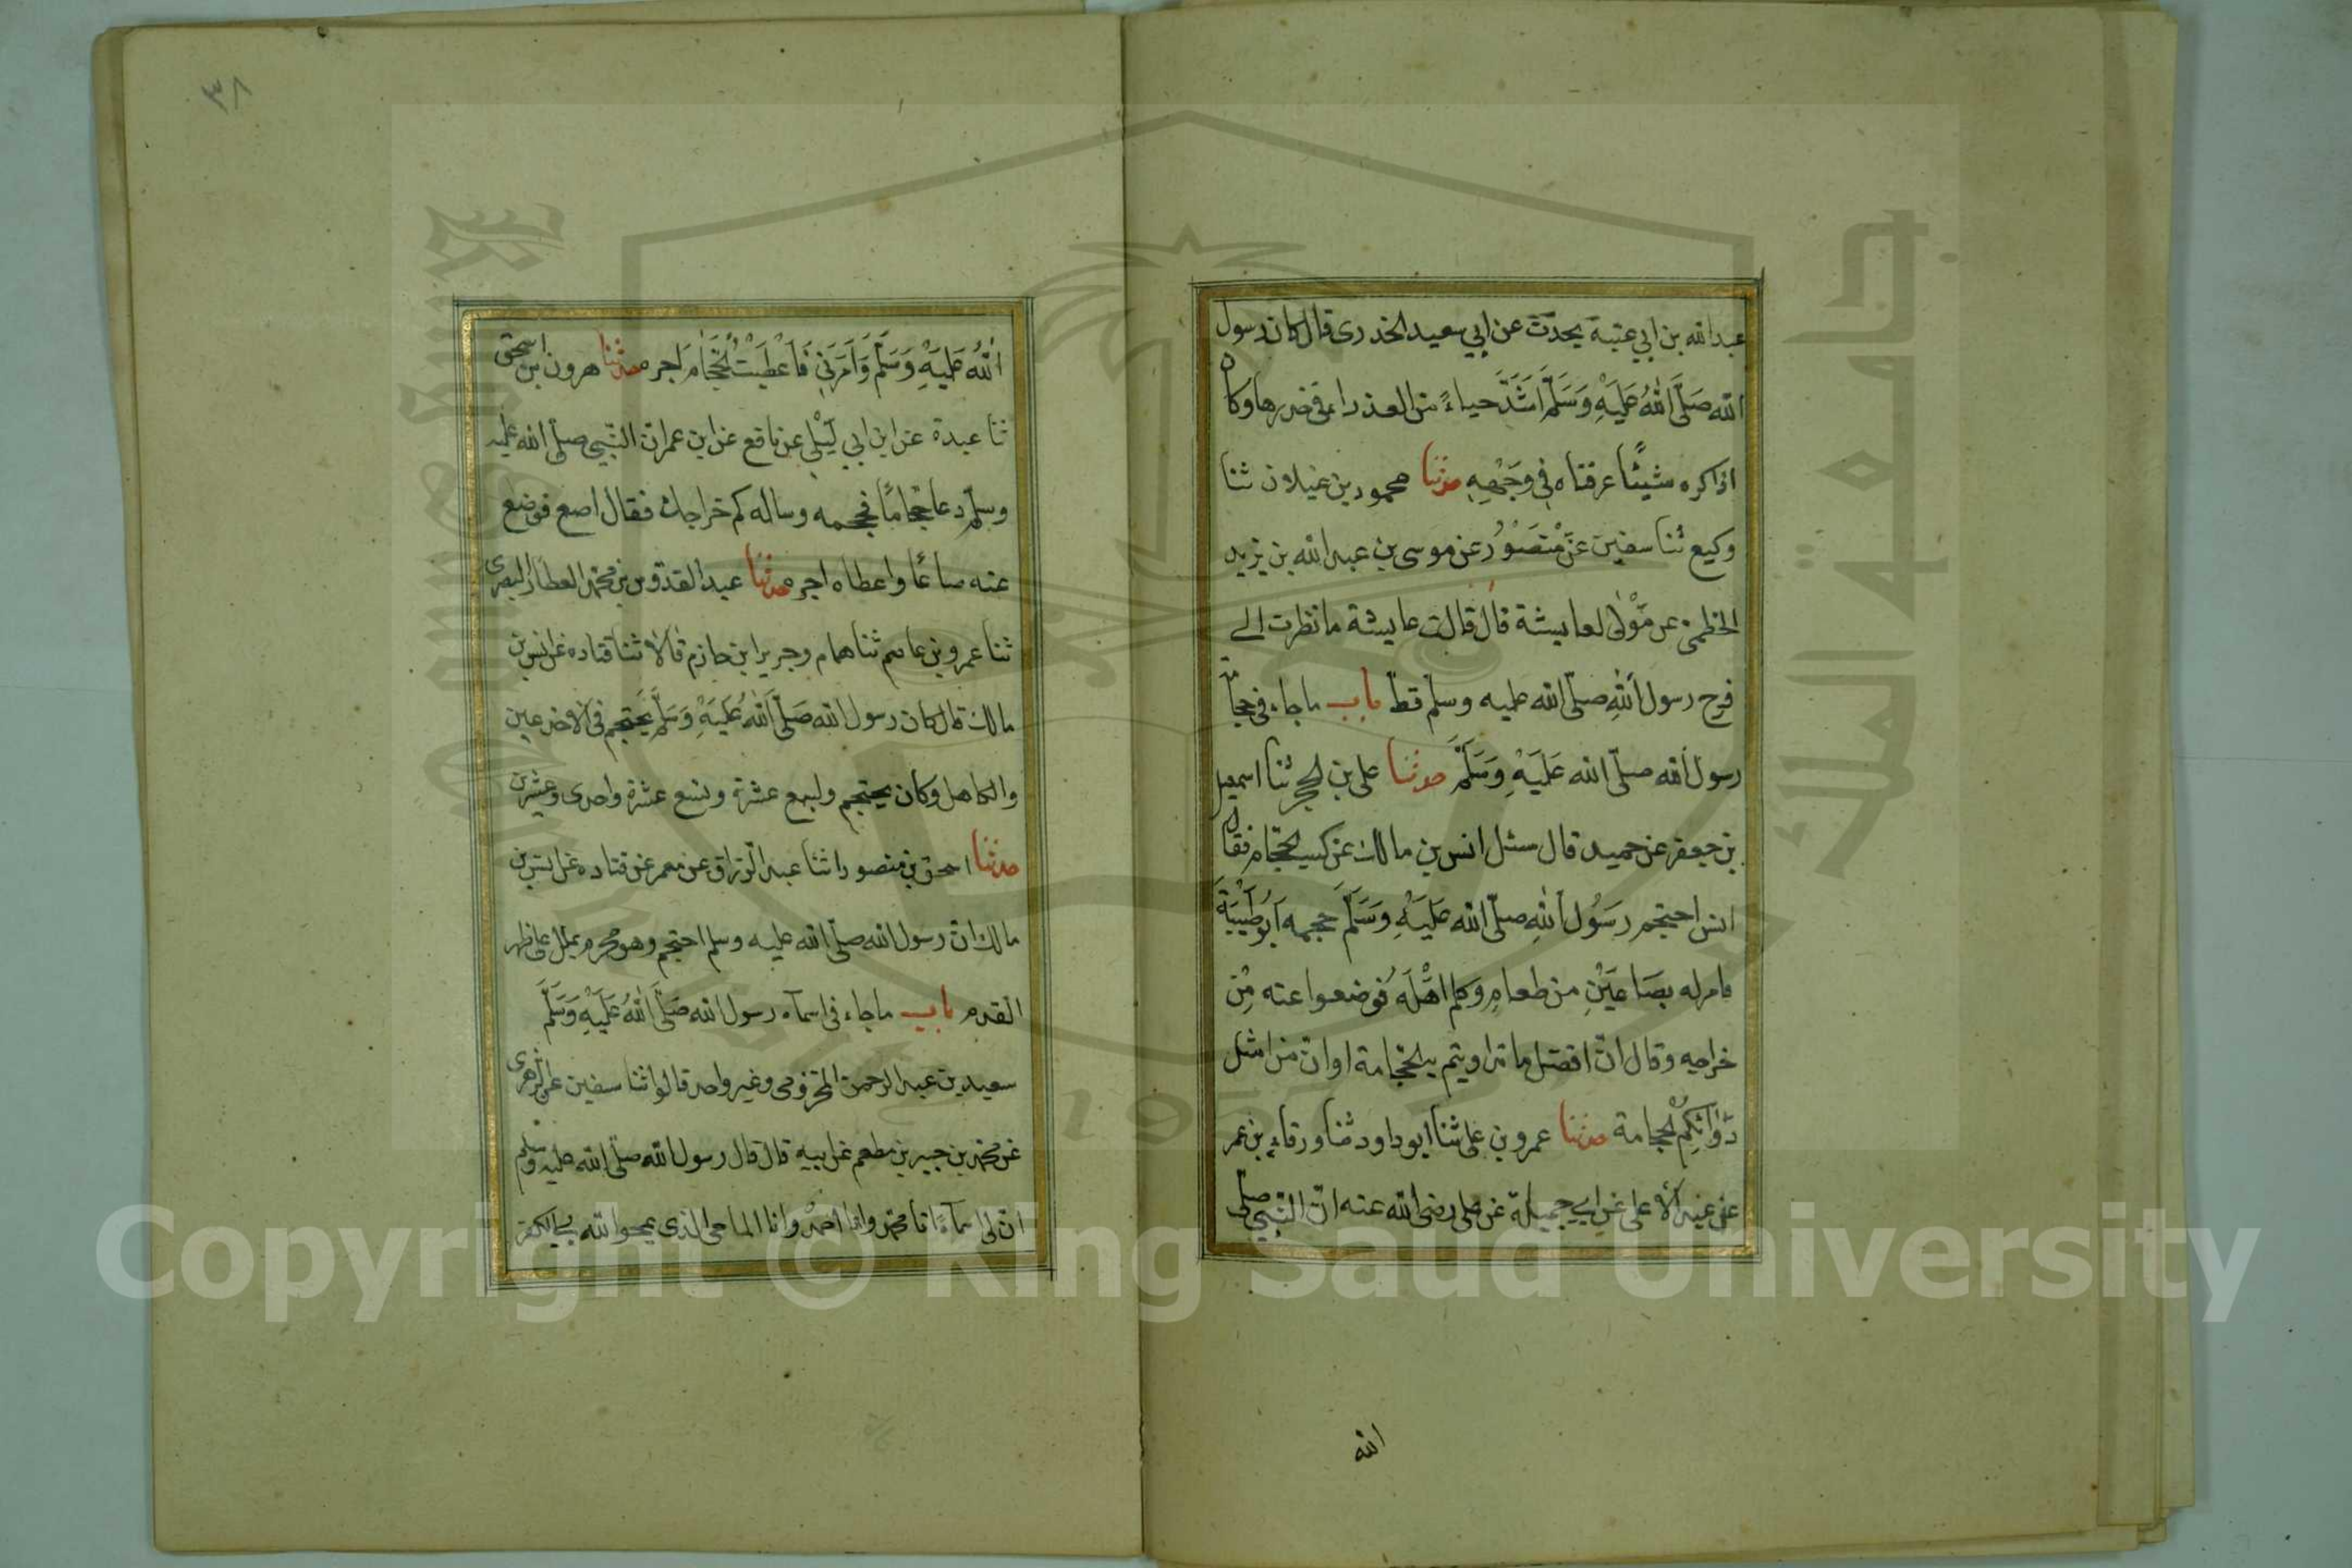 عبدالله بن ابي عتبة يحدّث عن ابي سعيد الخدرى قال كان رسول
الله صَلَّى اللهُ عَلَيْهِ وَسَلَّمَ اَشَدَّ حياءً من العذراء فى خدرها وكان
اذا كره شيئًا عرفناه فِى وَجْهِهِ حدثنا محمود بن غيلان ثنا
وكيع ثنا سفين عَنْ مَنْصُوْر عن موسى بن عبد الله بن يزيد
الخطمى عن مَوْلىً لعايشة قال قالت عايشة ما نظرت الے
فرج رسول اللهِ صلّى الله عليه وسلّم قطّ باب ماجاء فى حجا
رسول الله صلّى الله عَلَيْهِ وَسَلَّمَ حدثنا على بن الحجر ثنا اسمعيل
بن جعفر عن حميد قال سئل انس بن مالك عن كسب الحجّام فقال
انس احتجم رسُول اللهِ صلّى الله عَلَيْهِ وَسَلَّمَ حجمه اَبُو طَيْبَةَ
فامر له بصَاعَيْنِ من طعامٍ وكلم اهْلَهُ فوضعوا عنه مِن
خراجه وقال انّ افضل ما تداويتم به الحجامة او انّ من امثل
دَوَائِكُمْ الحجامة حدثنا عمرو بن على ثنا ابو داود ثنا ورقاء بن عمر
عن عبد الاعلى عن ابي جميلة عن على رضى الله عنه انّ النّبي صلّى
الله
٣٨
اللهُ عَلَيْهِ وَسَلَّمَ وَاَمَرَنِى فَاَعْطَيْتُ الْحَجَّامَ اجره حدثنا هرون بن اسحق
ثنا عبدة عن ابن ابي لَيْلى عن نافع عن ابن عمر انّ النّبي صلّى الله عليه
وسلّم دعا حجّامًا فحجمه وساله كم خراجك فقال اصع فوضع
عنه صاعًا واعطاه اجره حدثنا عبد القدّوس بن محمّد العطّار البصرى
ثنا عمرو بن عاصم ثنا همام وجرير ابن حازم قالا ثنا قتاده عن انس بن
مالك قال كان رسول الله صَلَّى اللهُ عَلَيْهِ وَسَلَّم يَحتجم فى الاخدعين
والكاهل وكان يحتجم ولسبع عشرة وتسع عشرة واحدى وعشرين
حدثنا اسحق بن منصور انبا عبد الرّزاق عن معمر عن قتاده عن انس بن
مالك انّ رسول الله صلّى الله عليه وسلم احتجم وهو محرم بملل على ظهر
القدم باب ماجاء فى اسمآء رسول الله صَلَّى اللهُ عَلَيْهِ وَسَلَّمَ
سعيد بن عبد الرحمن المخزومى وغير واحد قالوا ثنا سفين عن الزهرى
عن محمّد بن جبير بن مطعم عن ابيه قال قال رسول الله صلّى الله عليه وسلم
انّ لى اسمآءً انا محمّد وانا احمدْ وانا الماحى الذى يمحوا الله بي الكفر
جامعة الملك سعود
King Saud University
1957
Copyright © King Saud University